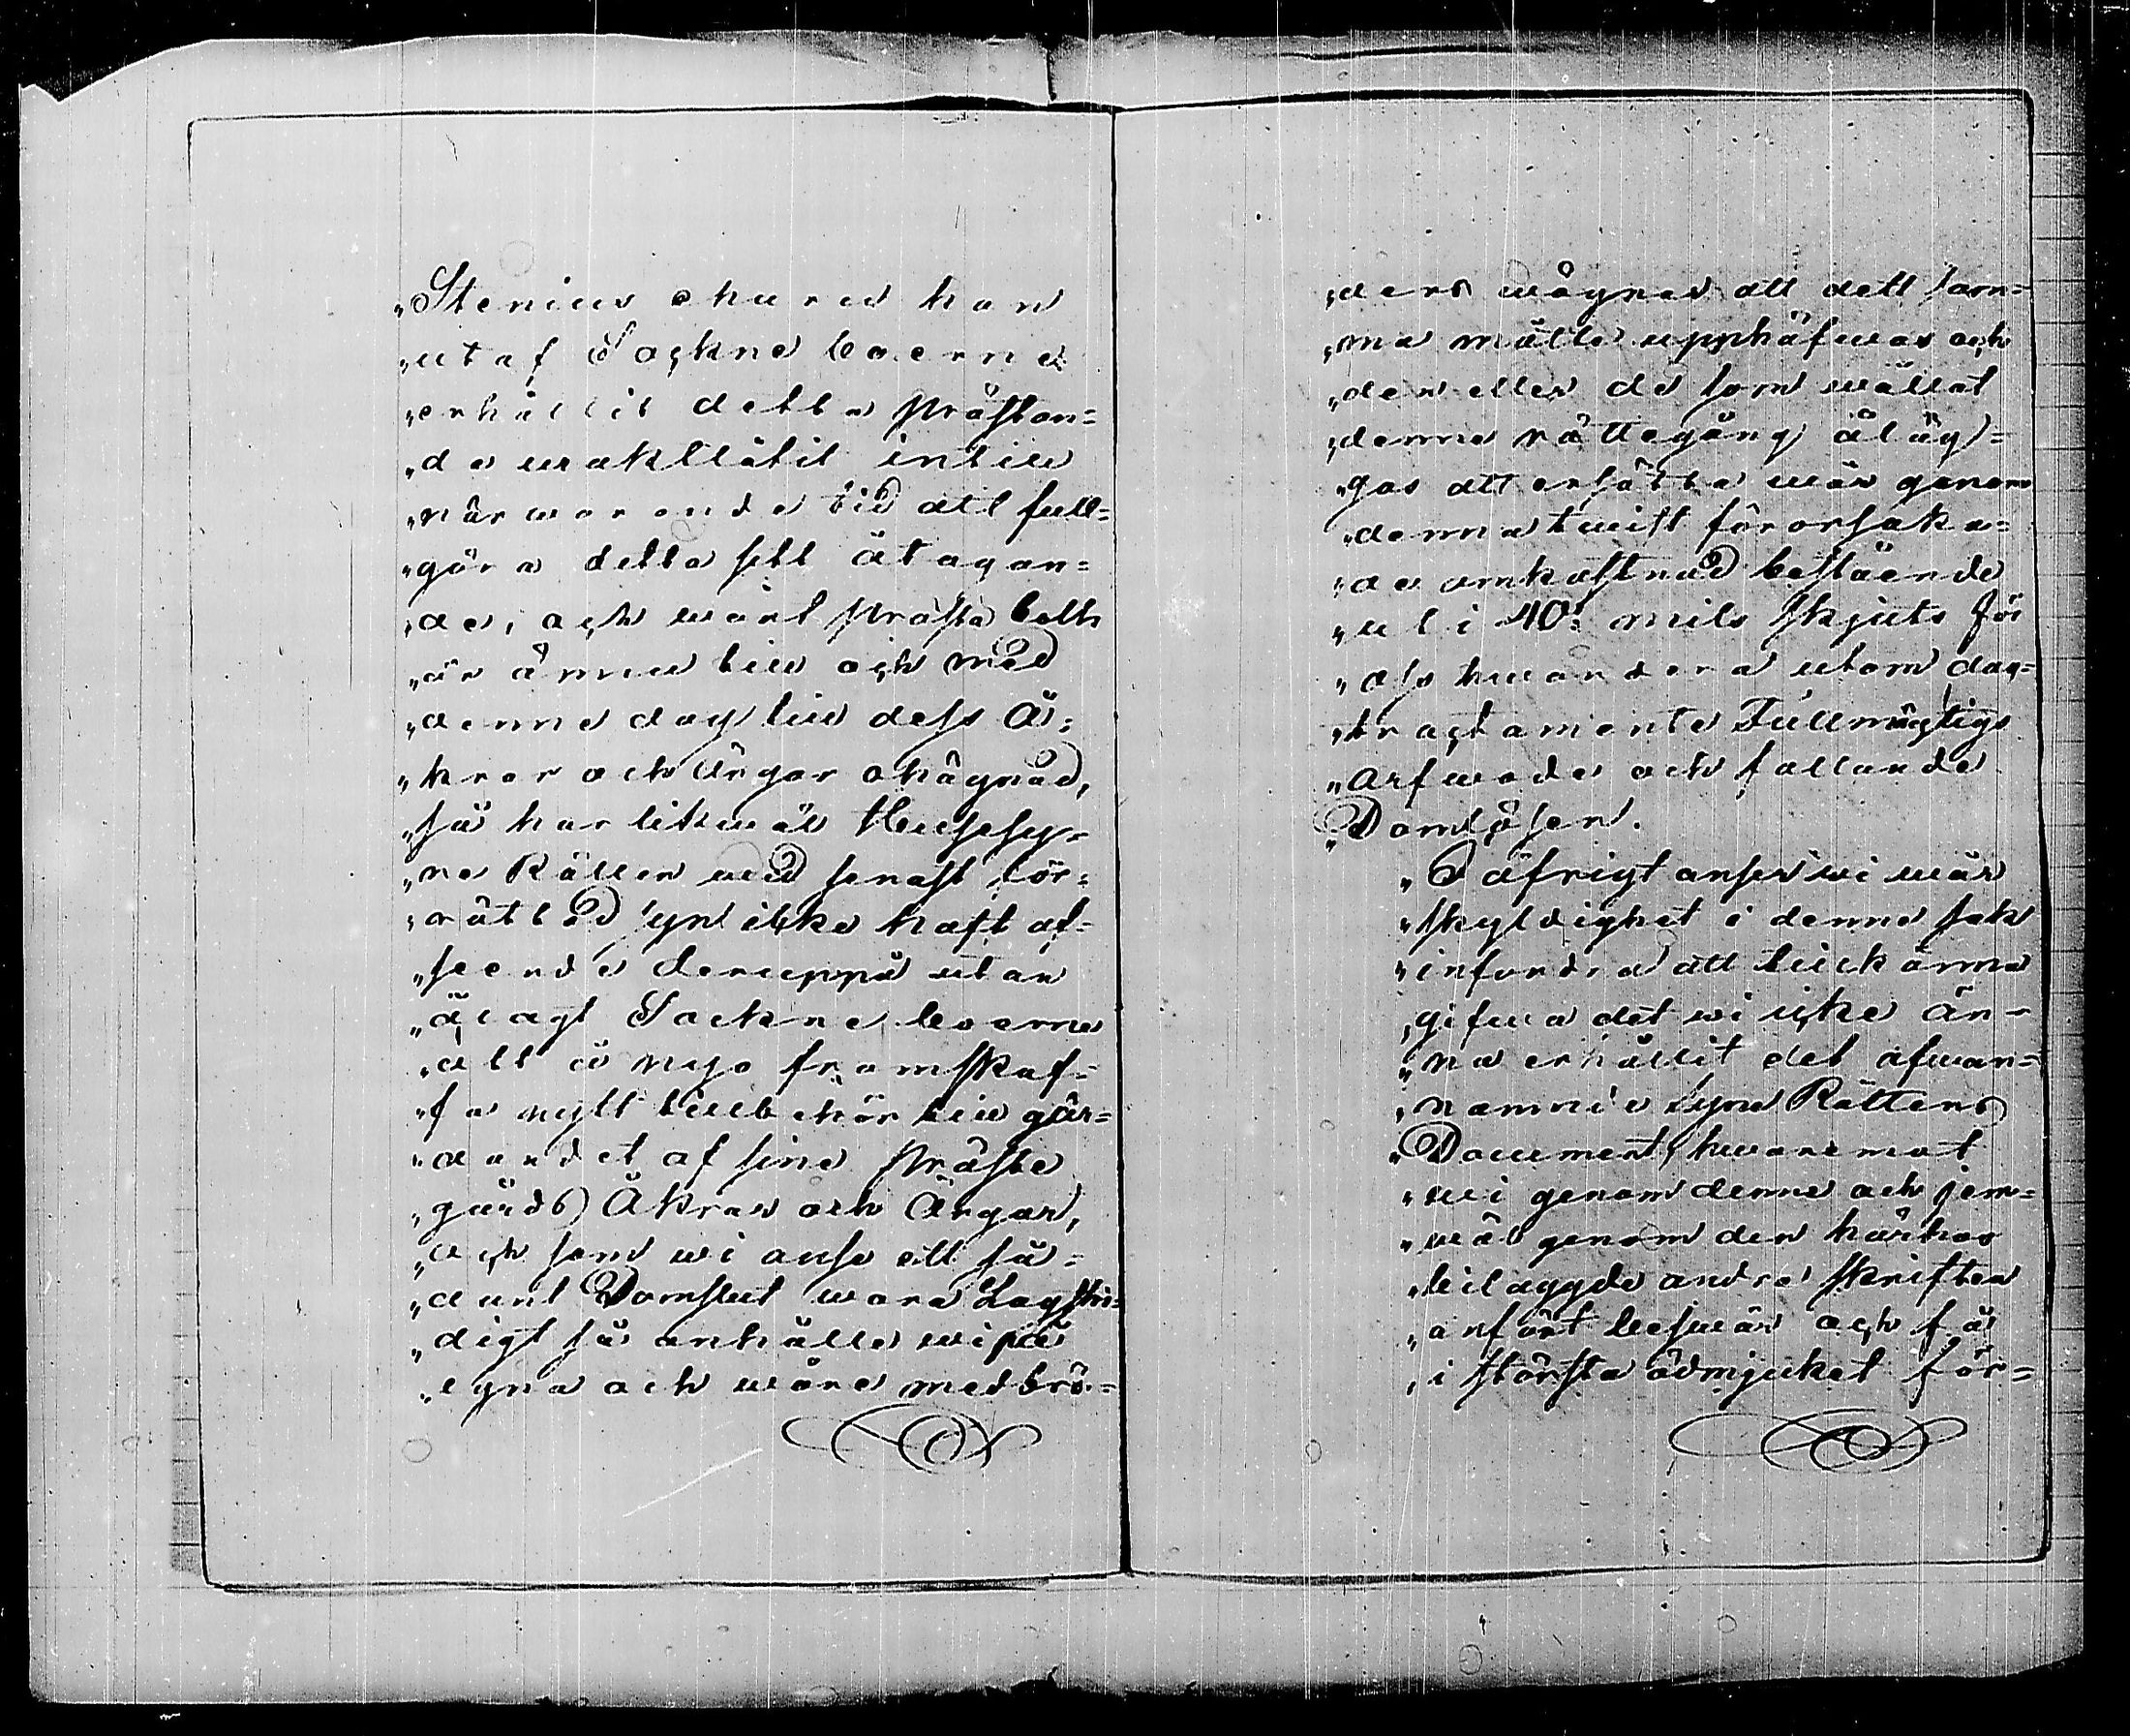 „Stenius ehuru han
„utaf Sockne boerne
„erhållit detta prästan-
„da uraktlåtit intill
„närwarande tid att full-
„göra detta sitt åtagan-
„de, och wårt präste boll
„är ännu till och med
„denne dag till dess Å-
„krar och Ängar ohägnad,
„så har likwäl Huusesy-
„ne Rätten wid senast för-
„rättad syn icke haft af-
„seende deruppå utan
„ålagt Sockne boerne
„att å nyo framskaf-
„fa nytt tillbehör till gär-
„dandet af sine präste
„gårds Åkrar och Ängar,
„och som wi anse ett så-
„dant Domslut wara Lagstri-
„digt så anhålle wi på
„egna och wåra medbrö-
„ders wägnar att dett sam-
„ma måtte upphäfwas och
„den eller de som wållat
„denne rättegång åläg-
„gas att ersätta wår genom
„denna twist förorsaka-
„de omkostnad bestående
„ut i 40: mils skjuts för
„oss hwardera utom dag-
„tractamente Fullmägtigs
„arfwode och fallande
„Domlösen.
„I öfrigt anser wi wår
„skyldighet i denne sak
„infordra att tillkänna
„gifwa det wi icke än-
„na erhållit det afwan-
„nämnde Syne Rättens
„Document, hwaremot
„wi genom denne och jem-
„wäl genom den härhos
„bilaggde andra skriften
„anfört beswär och få
„i största ödmjukhet för-